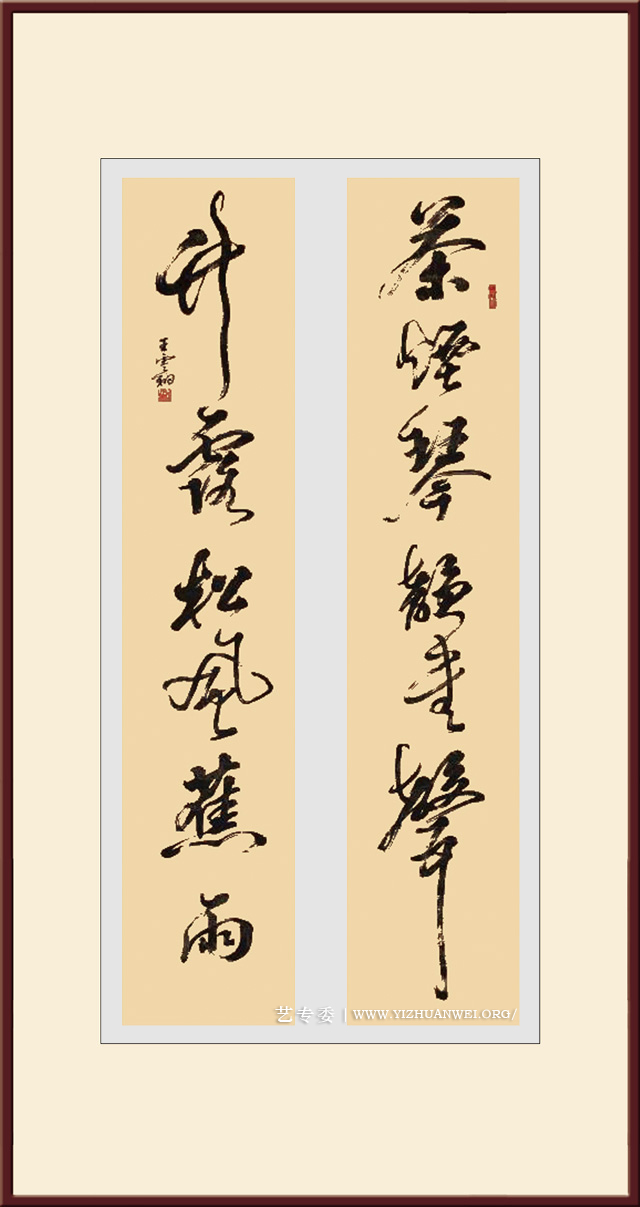 茶煙琴韻書聲
竹露松風蕉雨
王雲翔
艺专委 | WWW.YIZHUANWEI.ORG/